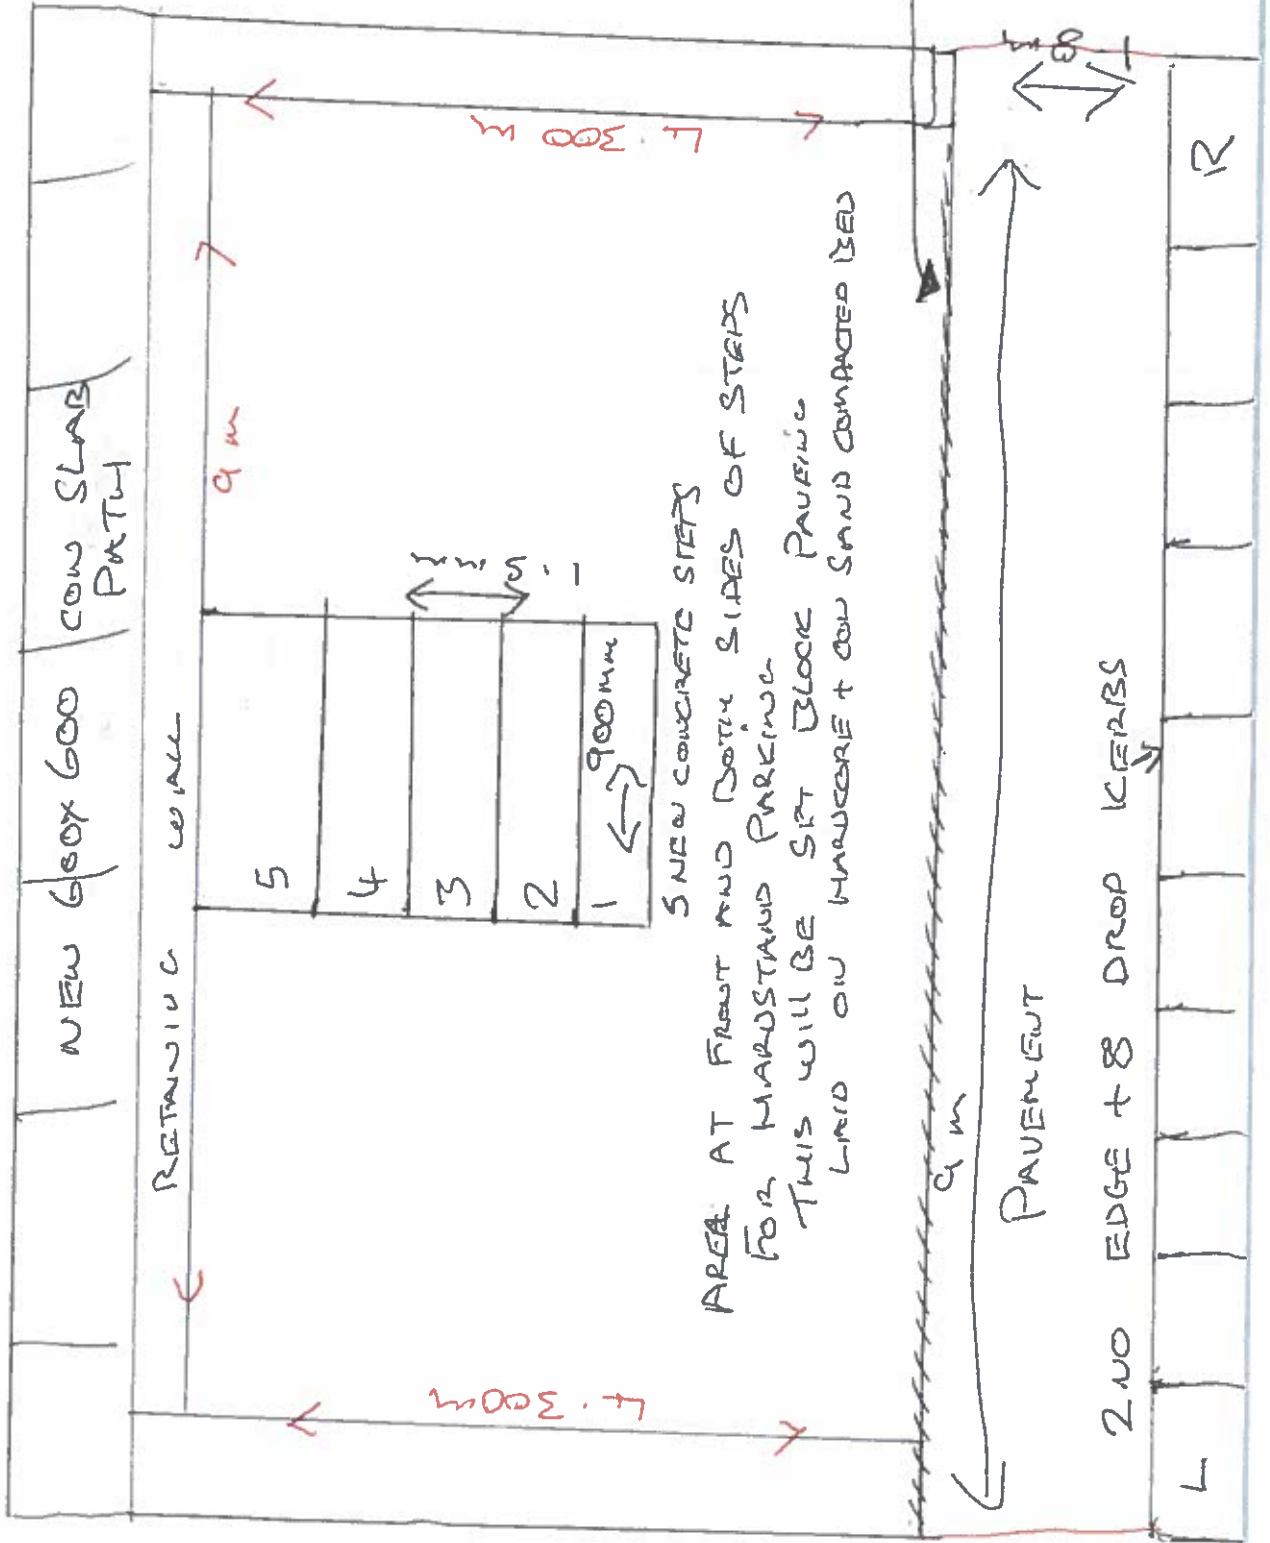 NEW 600X600 CON SLAB
PATH
RETAINING WALL
9 m
4.300 m
4.300m
5
4
3
2
1
900mm
5 NEW CONCRETE STEPS
AREA AT FRONT AND BOTH SIDES OF STEPS
FOR HARDSTAND PARKING
THIS WILL BE SET BLOCK PAVEING
LAID ON HARDCORE + CON SAND COMPACTED BED
9 m
PAVEMENT
2 NO EDGE + 8 DROP KERBS
L
R